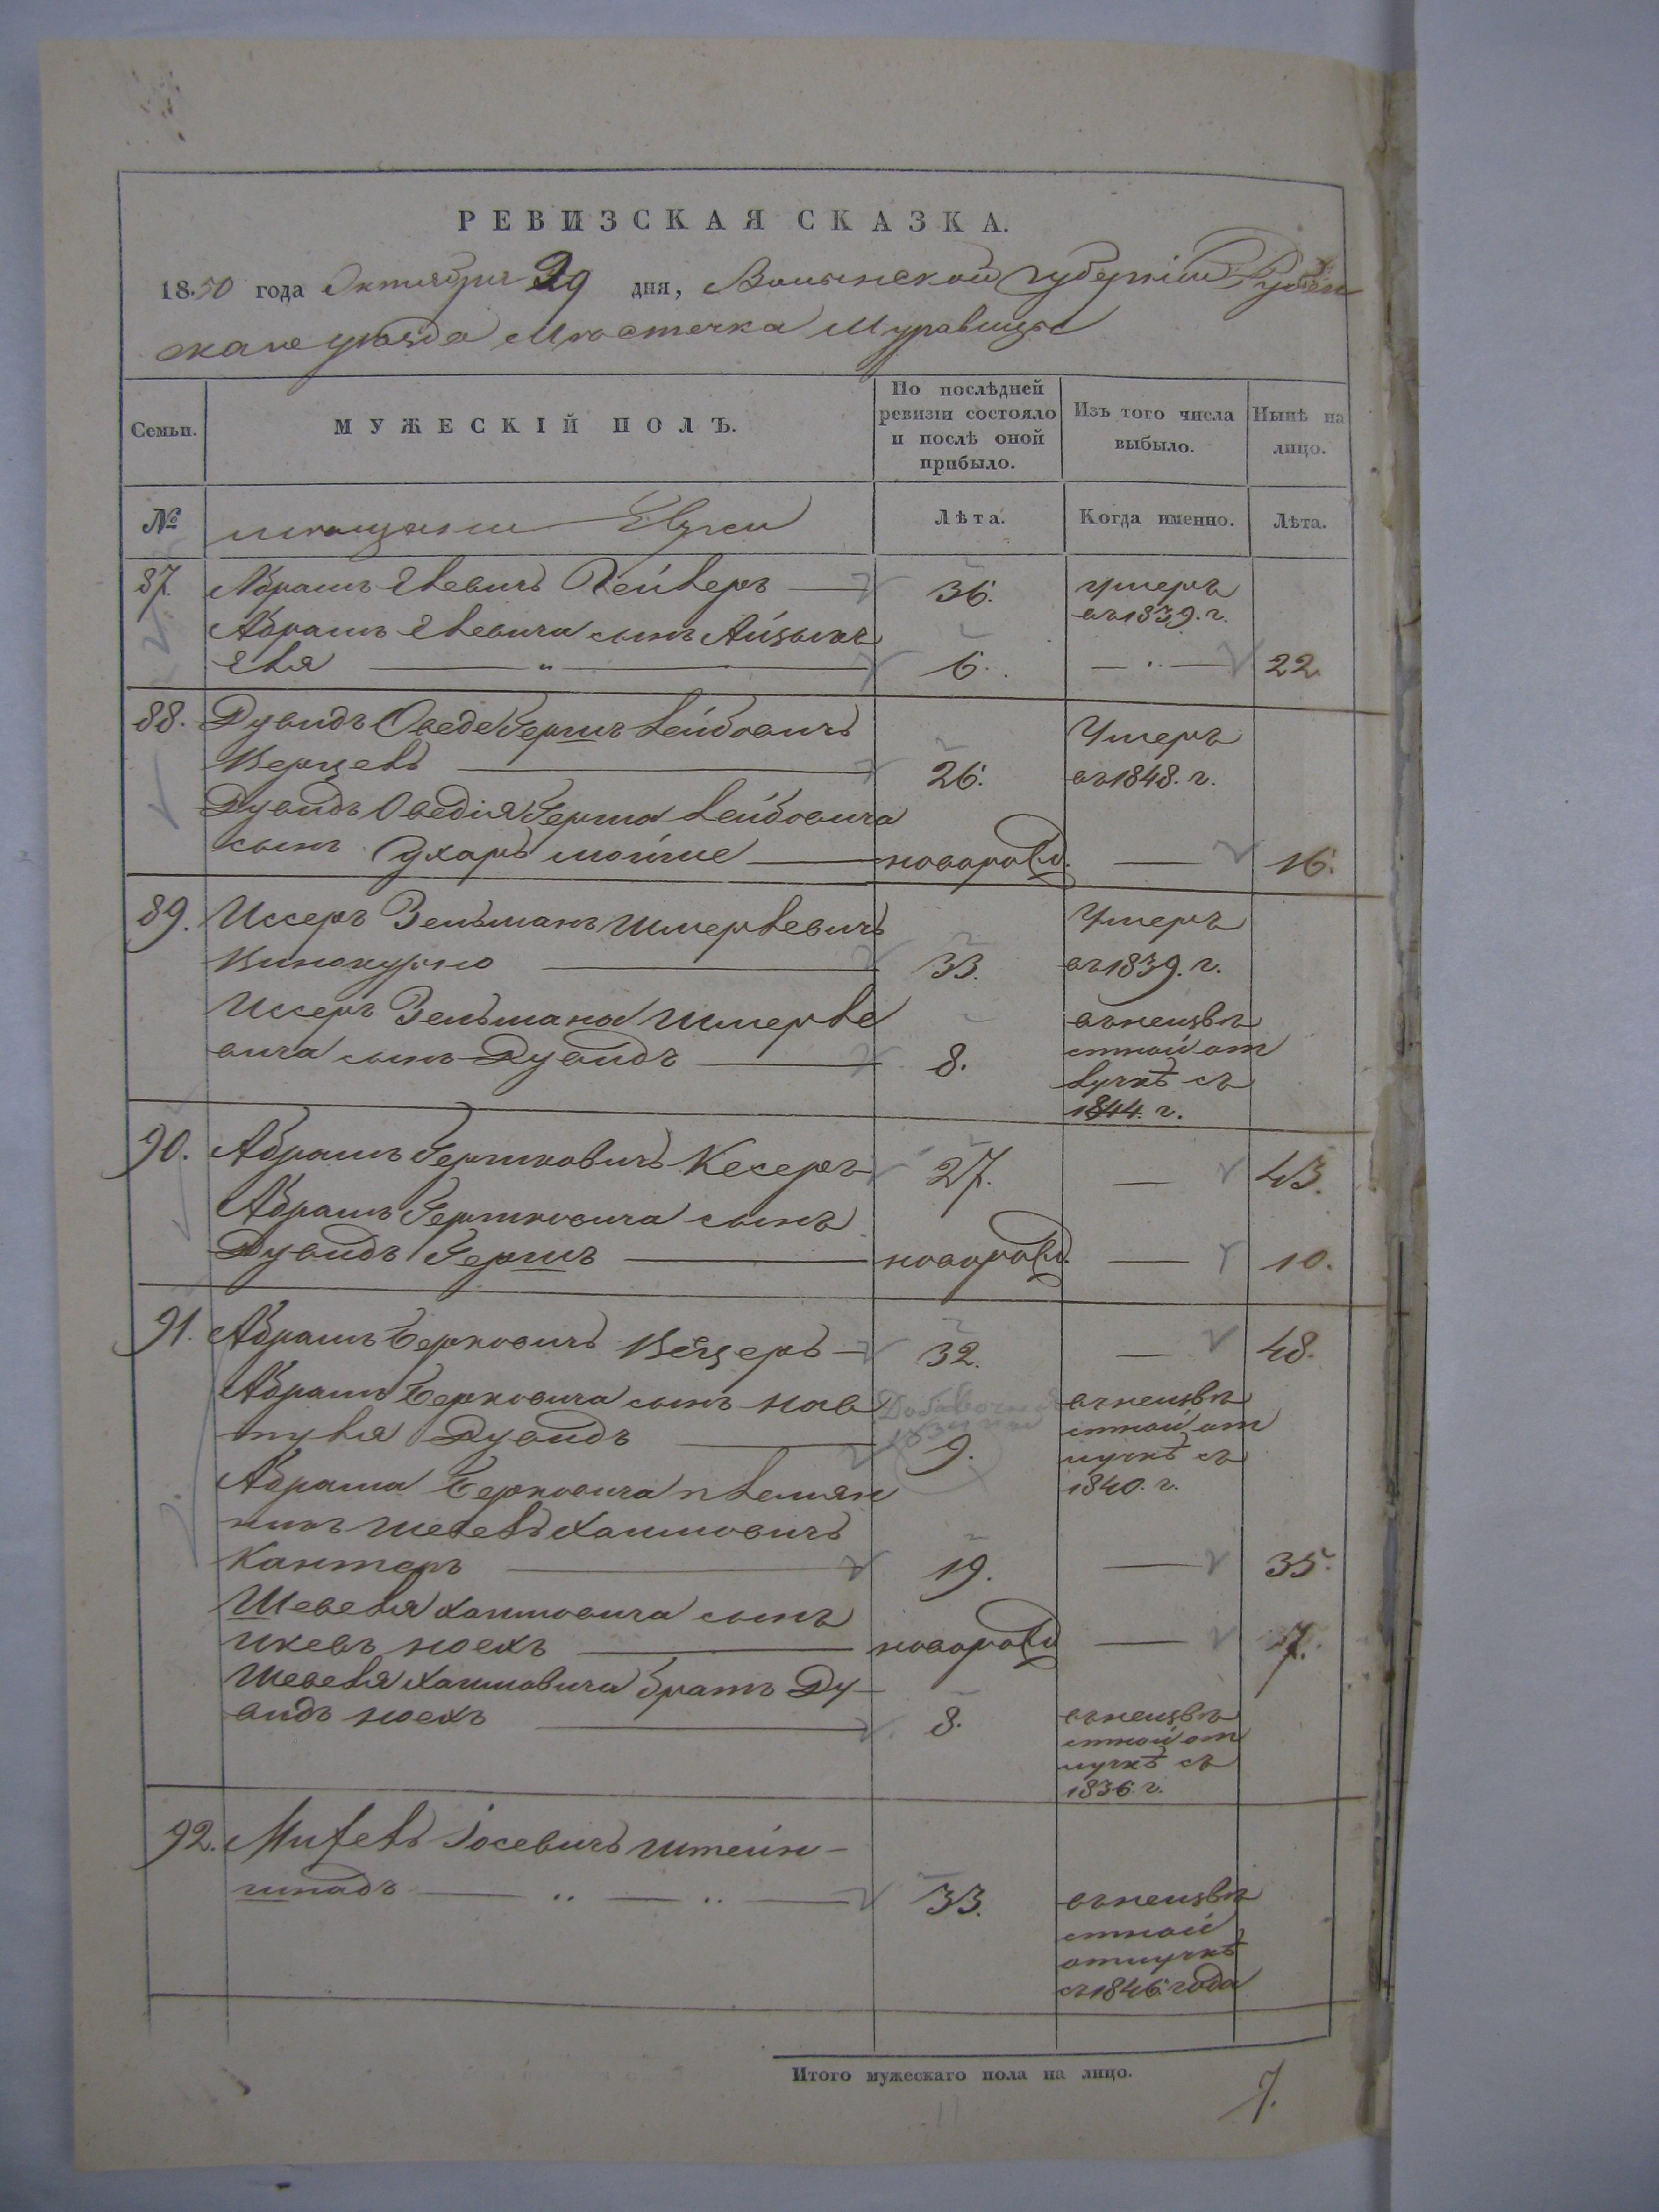 РЕВИЗСКАЯ СКАЗКА.
1850 года Октября 29 дня, Волынской губернiи Дубен
скаго уѣзда Мѣстечка Муравицы
Семьи.
МУЖЕСКІЙ ПОЛЪ.
По послѣдней ревизіи состояло и послѣ оной прибыло.
Изъ того числа выбыло.
Нынѣ на лицо.
№
мѣщане Евреи
Лѣта.
Когда именно.
Лѣта.
87. Абрамъ Елевичъ — 36. умеръ
въ 1839. г.
Абрамъ Елевича сынъ Айзыкъ
Еля — " — 6. — 22
88. Дувидъ Оведь Гершъ Лейбовичъ Умеръ
— 26. въ 1848. г.
Дувидъ Оведія Герша Лейбовича
сынъ Сухаръ Мойше — новорожд. — 16.
89. Иссеръ Зельманъ Шмерлевичъ Умеръ
Винокуръ — 33. въ 1839. г.
Иссеръ Зельмана Шмерле въ неизвѣ
вича сынъ Дувидъ — 8. стной от
лучкѣ съ
1844. г.
90. Абрамъ Гершковичъ Кесеръ 27. — 43.
Абрамъ Гершковича сынъ
Дувидъ Гершъ — новорожд. — 10.
91. Абрамъ Берковичъ — 32. — 48.
Абрамъ Берковича сынъ Наф въ неизвѣ
туля Дувидъ — 9. стной от
лучкѣ съ
1840. г.
Абрама Берковича племян
никъ Шевель Хаимовичъ
Канторъ — 19. — 35.
Шевеля Хаимовича сынъ
Ноехъ — новорожд — 7.
Шевеля Хаимовича братъ Ду-
видъ Ноехъ — 8. въ неизвѣ
стной от
лучкѣ съ
1836 г.
92. Михель Іосевичъ Штейн-
шнадъ — " — " — 33. въ неизвѣ
стной
отлучкѣ
съ 1846 года
Итого мужескаго пола на лицо.
7.